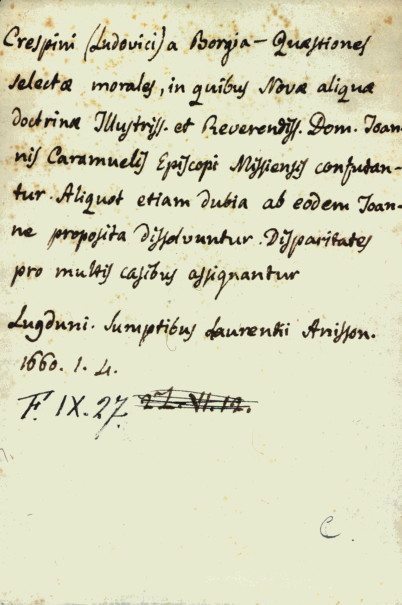 Crespini (Ludovici) a Borgia - Quæstiones
selectæ morales, in quibus Novæ aliquæ
doctrinæ Illustriss. et Reverendiss. Dom. Joan-
nis Caramuelis Episcopi Missiensis confutan-
tur. Aliquot etiam dubia ab eodem Joan-
ne proposita dissolvuntur. Disparitates
pro multis casibus assignantur
Lugduni. Sumptibus Laurentii Anisson.
1660. 1. 4.
F. IX. 27. 27. VI. 12.
C.